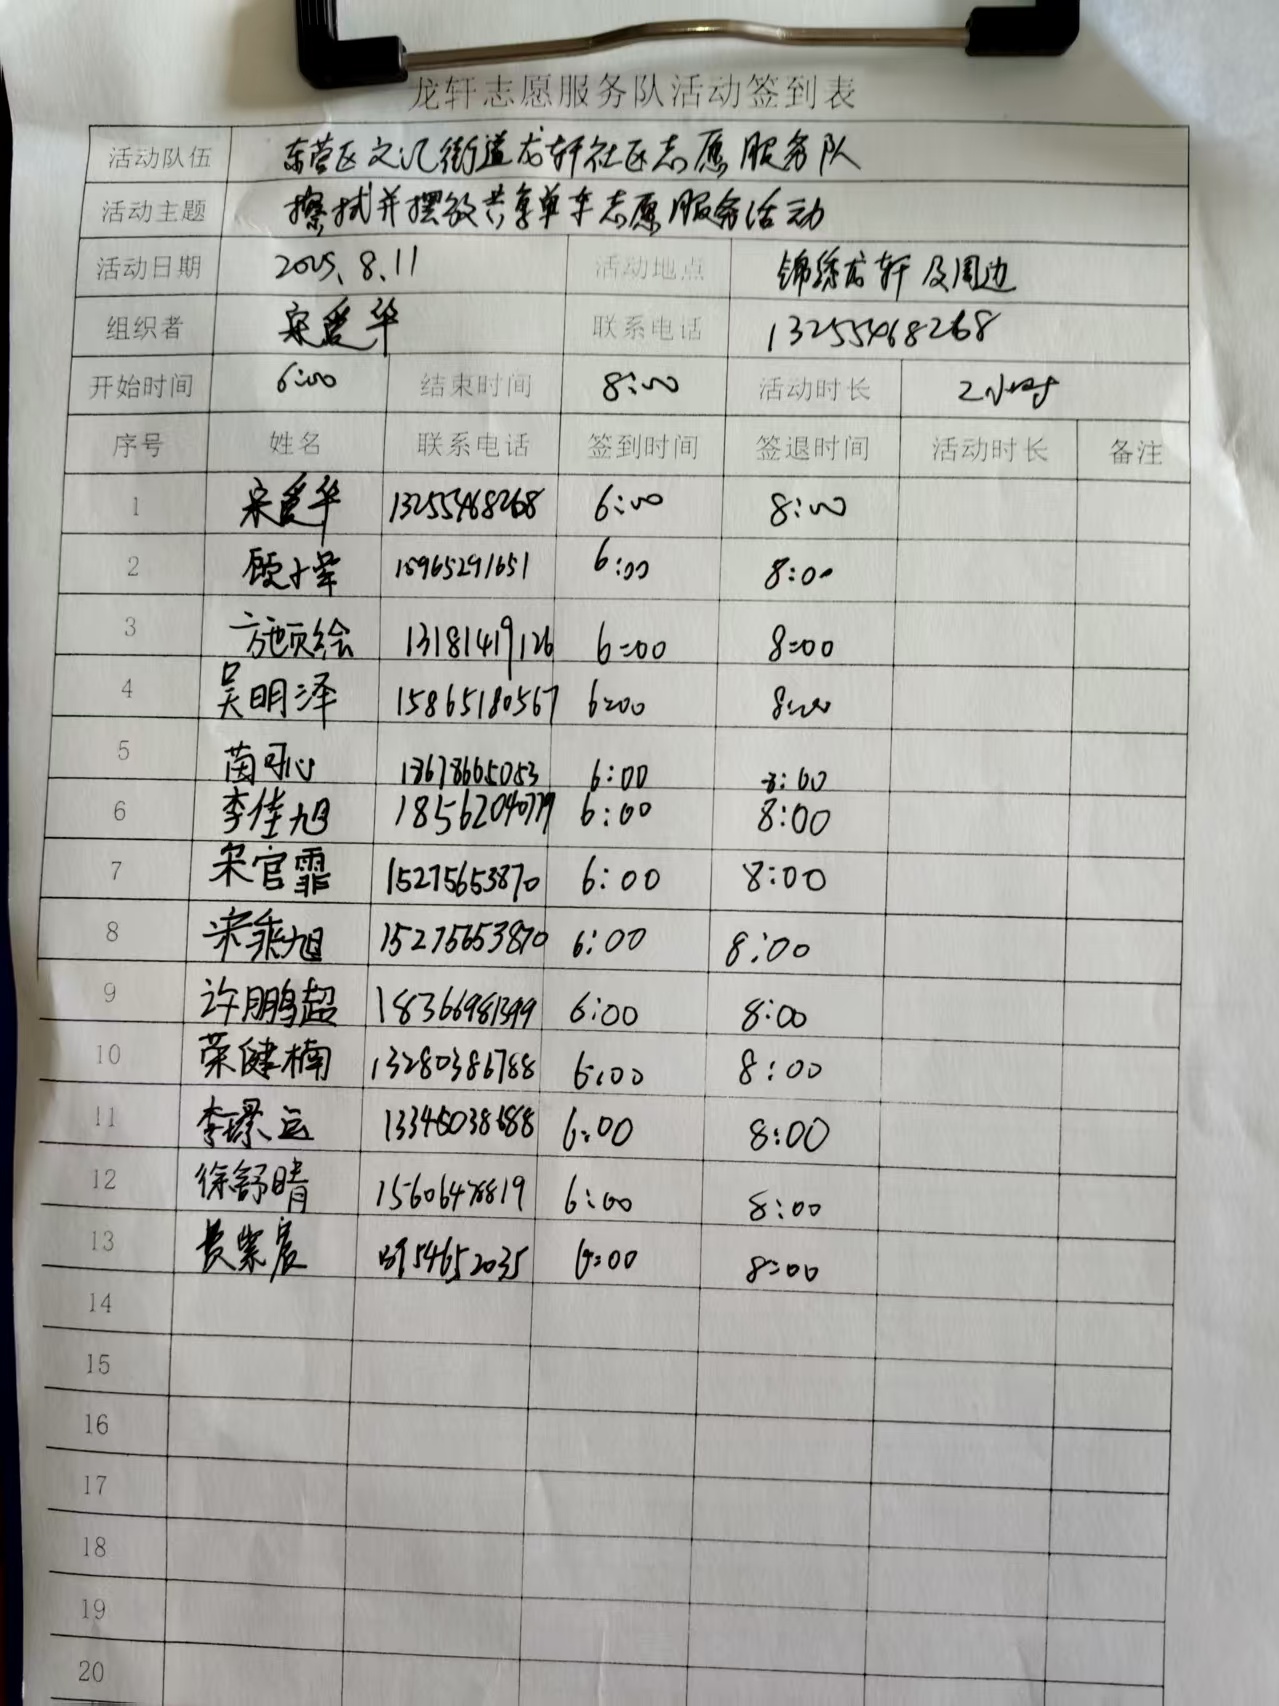 龙轩志愿服务队活动签到表
活动队伍 东营区文汇街道龙轩社区志愿服务队
活动主题 擦拭并摆放共享单车志愿服务活动
活动日期 2025.8.11 活动地点 锦绣龙轩及周边
组织者 宋爱华 联系电话 13255468268
开始时间 6:00 结束时间 8:00 活动时长 2小时
序号 姓名 联系电话 签到时间 签退时间 活动时长 备注
1 宋爱华 13255468268 6:00 8:00
2 15965291651 6:00 8:00
3 13181419126 6:00 8:00
4 吴明泽 15865180567 6:00 8:00
5 苗可心 13678665053 6:00 8:00
6 李佳旭 18562040779 6:00 8:00
7 宋官霏 15275653870 6:00 8:00
8 宋乘旭 15275653870 6:00 8:00
9 许鹏超 18366981399 6:00 8:00
10 荣健楠 13280386788 6:00 8:00
11 李璟运 6:00 8:00
12 徐舒晴 6:00 8:00
13 6:00 8:00
14
15
16
17
18
19
20